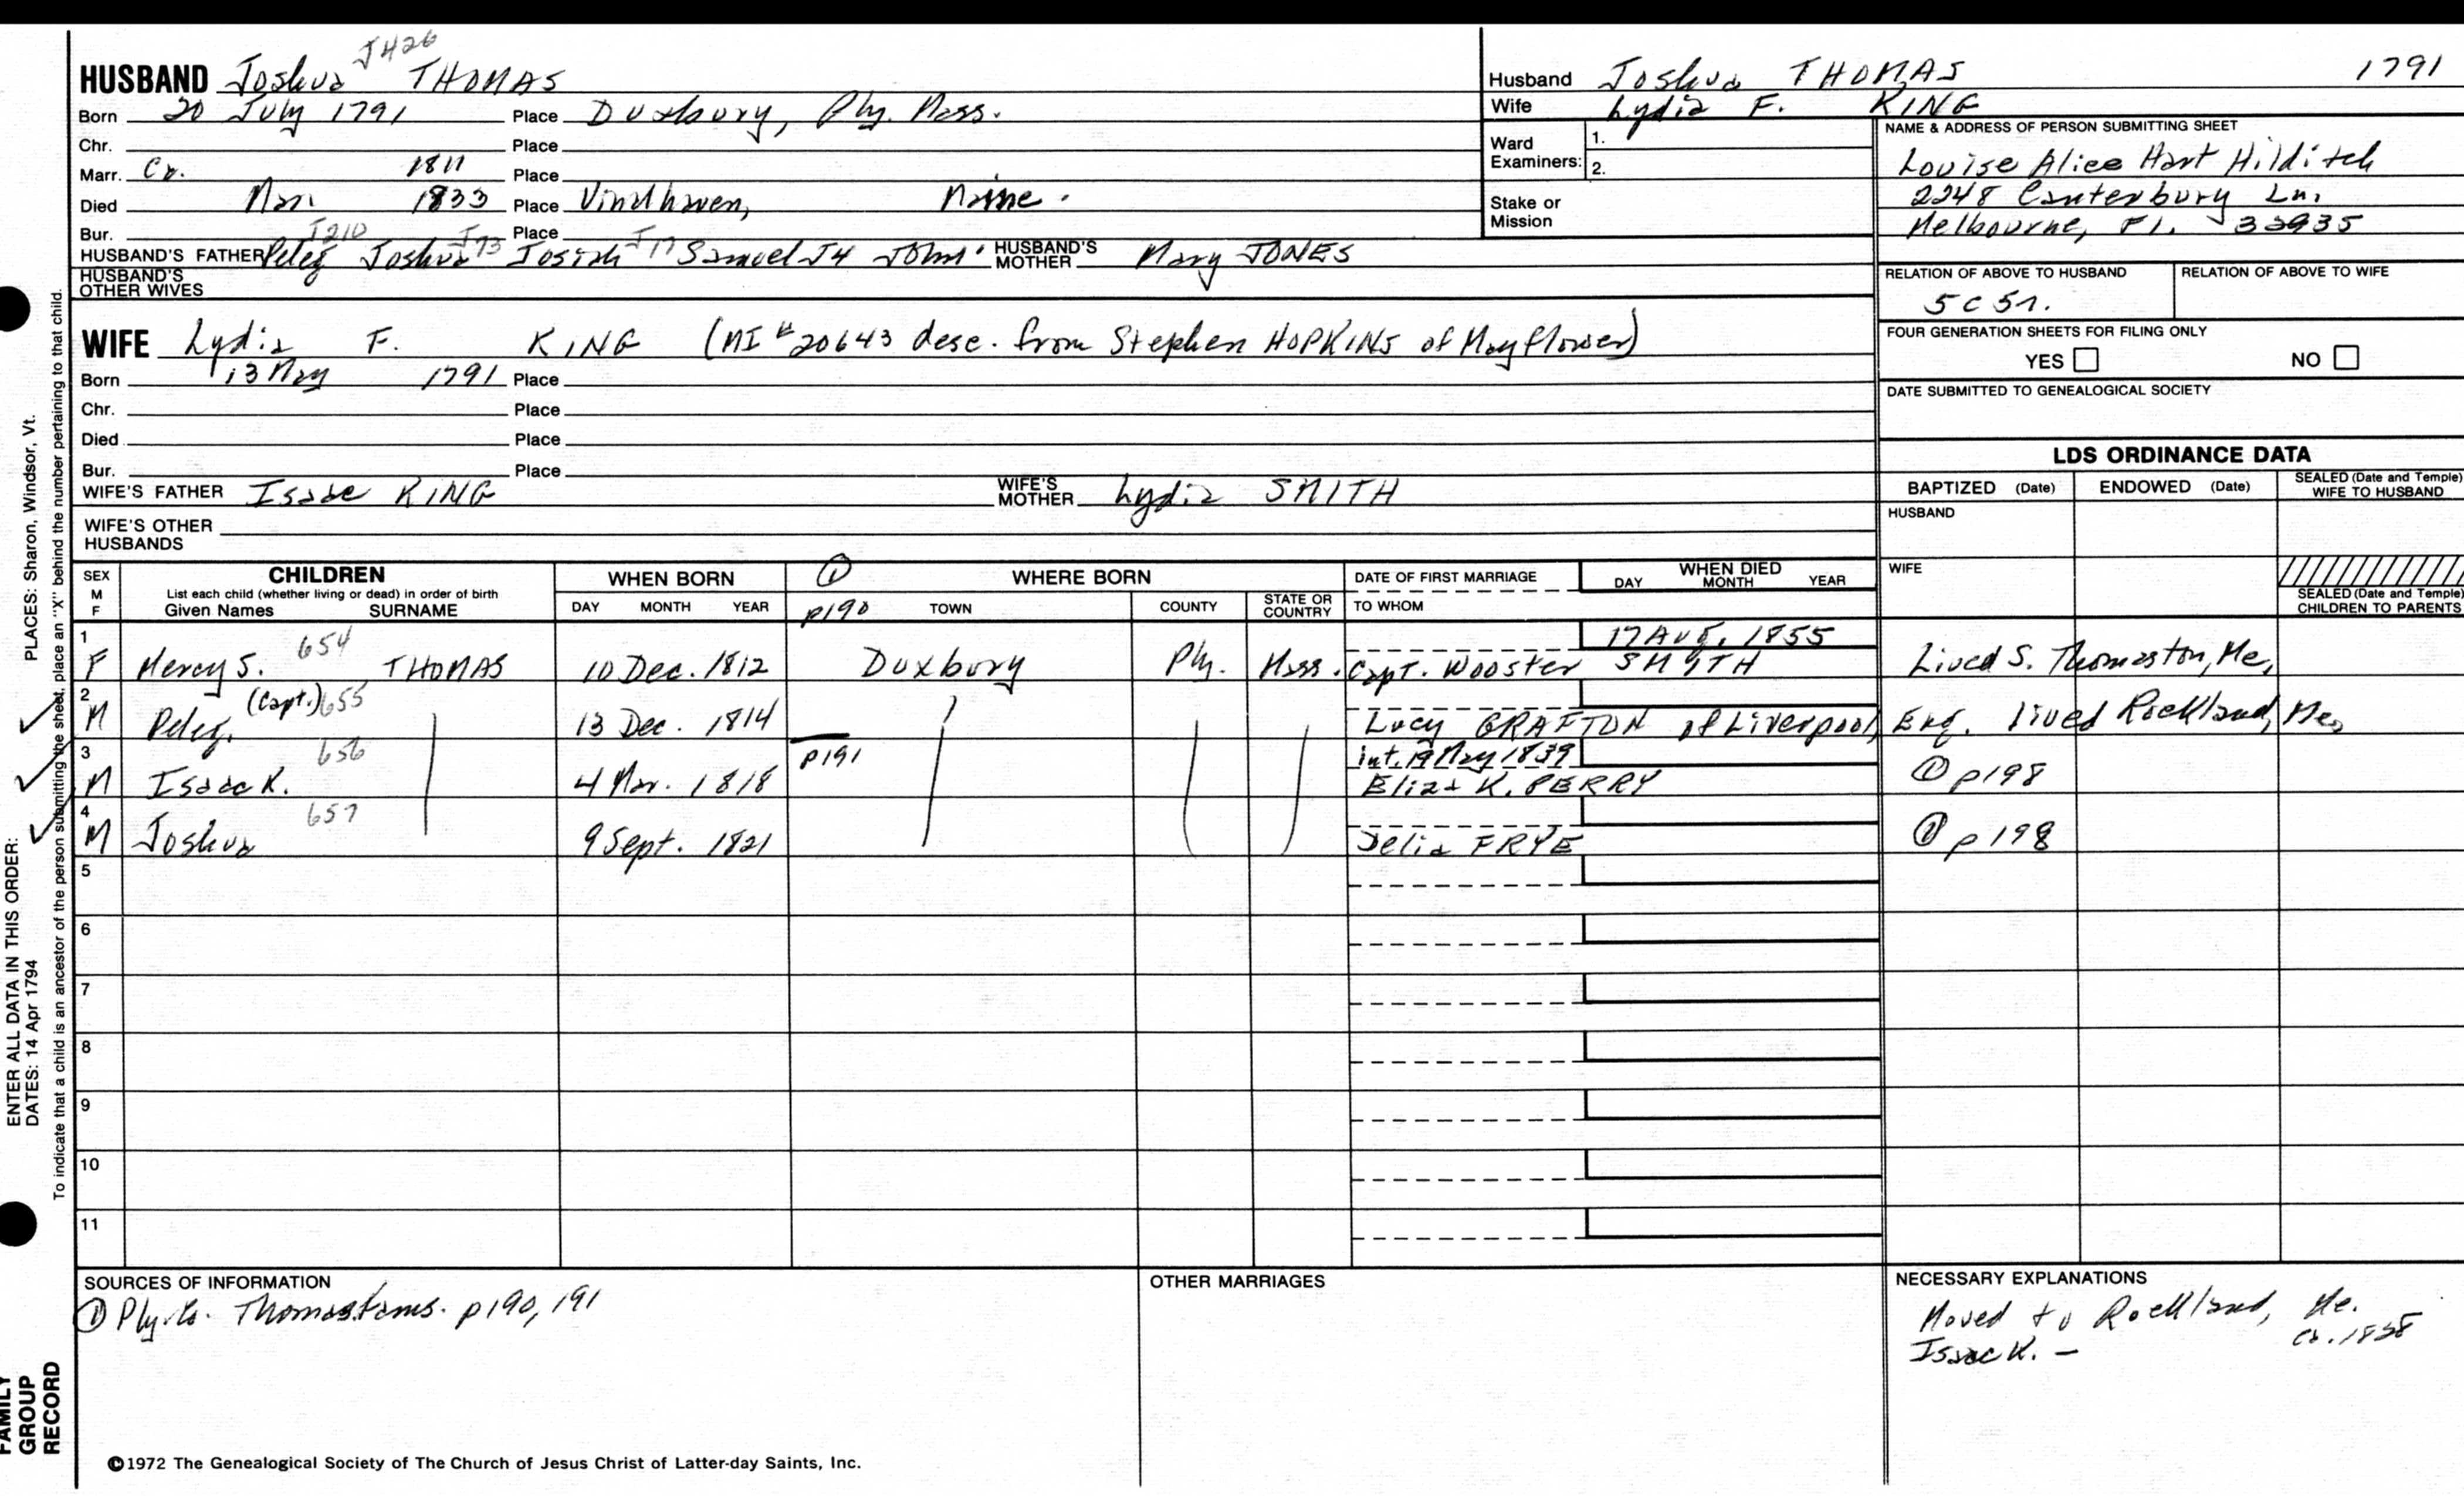 J426
HUSBAND Joshua THOMAS
Born 20 July 1791 Place Duxbury, Ply. Mass.
Chr. Place
Marr. Ca. 1811 Place
Died Mar. 1833 Place Vinalhaven, Maine.
Bur. Place
J210 J73 J17
HUSBAND'S FATHER Peleg Joshua Josiah Samuel J4 John HUSBAND'S MOTHER Mary JONES
HUSBAND'S OTHER WIVES
WIFE Lydia F. KING (MI # 20643 desc. from Stephen HOPKINS of Mayflower)
Born 13 May 1791 Place
Chr. Place
Died Place
Bur. Place
WIFE'S FATHER Isaac KING WIFE'S MOTHER Lydia SMITH
WIFE'S OTHER HUSBANDS
Husband Joshua THOMAS 1791
Wife Lydia F. KING
Ward Examiners: 1. 2.
Stake or Mission
NAME & ADDRESS OF PERSON SUBMITTING SHEET
Louise Alice Hart Hilditch
2248 Canterbury Ln.
Melbourne, Fl. 32935
RELATION OF ABOVE TO HUSBAND RELATION OF ABOVE TO WIFE
5 C 5r.
FOUR GENERATION SHEETS FOR FILING ONLY
YES NO
DATE SUBMITTED TO GENEALOGICAL SOCIETY
LDS ORDINANCE DATA
BAPTIZED (Date) ENDOWED (Date) SEALED (Date and Temple) WIFE TO HUSBAND
HUSBAND
WIFE
SEALED (Date and Temple) CHILDREN TO PARENTS
SEX M F CHILDREN List each child (whether living or dead) in order of birth Given Names SURNAME
WHEN BORN DAY MONTH YEAR
① p190 WHERE BORN TOWN COUNTY STATE OR COUNTRY
DATE OF FIRST MARRIAGE TO WHOM WHEN DIED DAY MONTH YEAR
1 F Mercy S. 654 THOMAS 10 Dec. 1812 Duxbury Ply. Mass. 17 Aug. 1855 Capt. Wooster SMITH Lived S. Thomaston, Me.
2 M Peleg (Capt.) 655 13 Dec. 1814 Lucy GRAFTON of Liverpool, Eng. lived Rockland, Me.
3 M Isaac K. 656 4 Mar. 1818 p191 int. 19 May 1839 Eliza K. PERRY ① p198
4 M Joshua 657 9 Sept. 1821 Delia FRYE ① p198
5
6
7
8
9
10
11
SOURCES OF INFORMATION
① Ply. Co. Thomas fams. p190, 191
OTHER MARRIAGES
NECESSARY EXPLANATIONS
Moved to Rockland, Me.
Isaac K. — ca. 1838
©1972 The Genealogical Society of The Church of Jesus Christ of Latter-day Saints, Inc.
ENTER ALL DATA IN THIS ORDER:
DATES: 14 Apr 1794 PLACES: Sharon, Windsor, Vt.
To indicate that a child is an ancestor of the person submitting the sheet, place an "X" behind the number pertaining to that child.
FAMILY
GROUP
RECORD